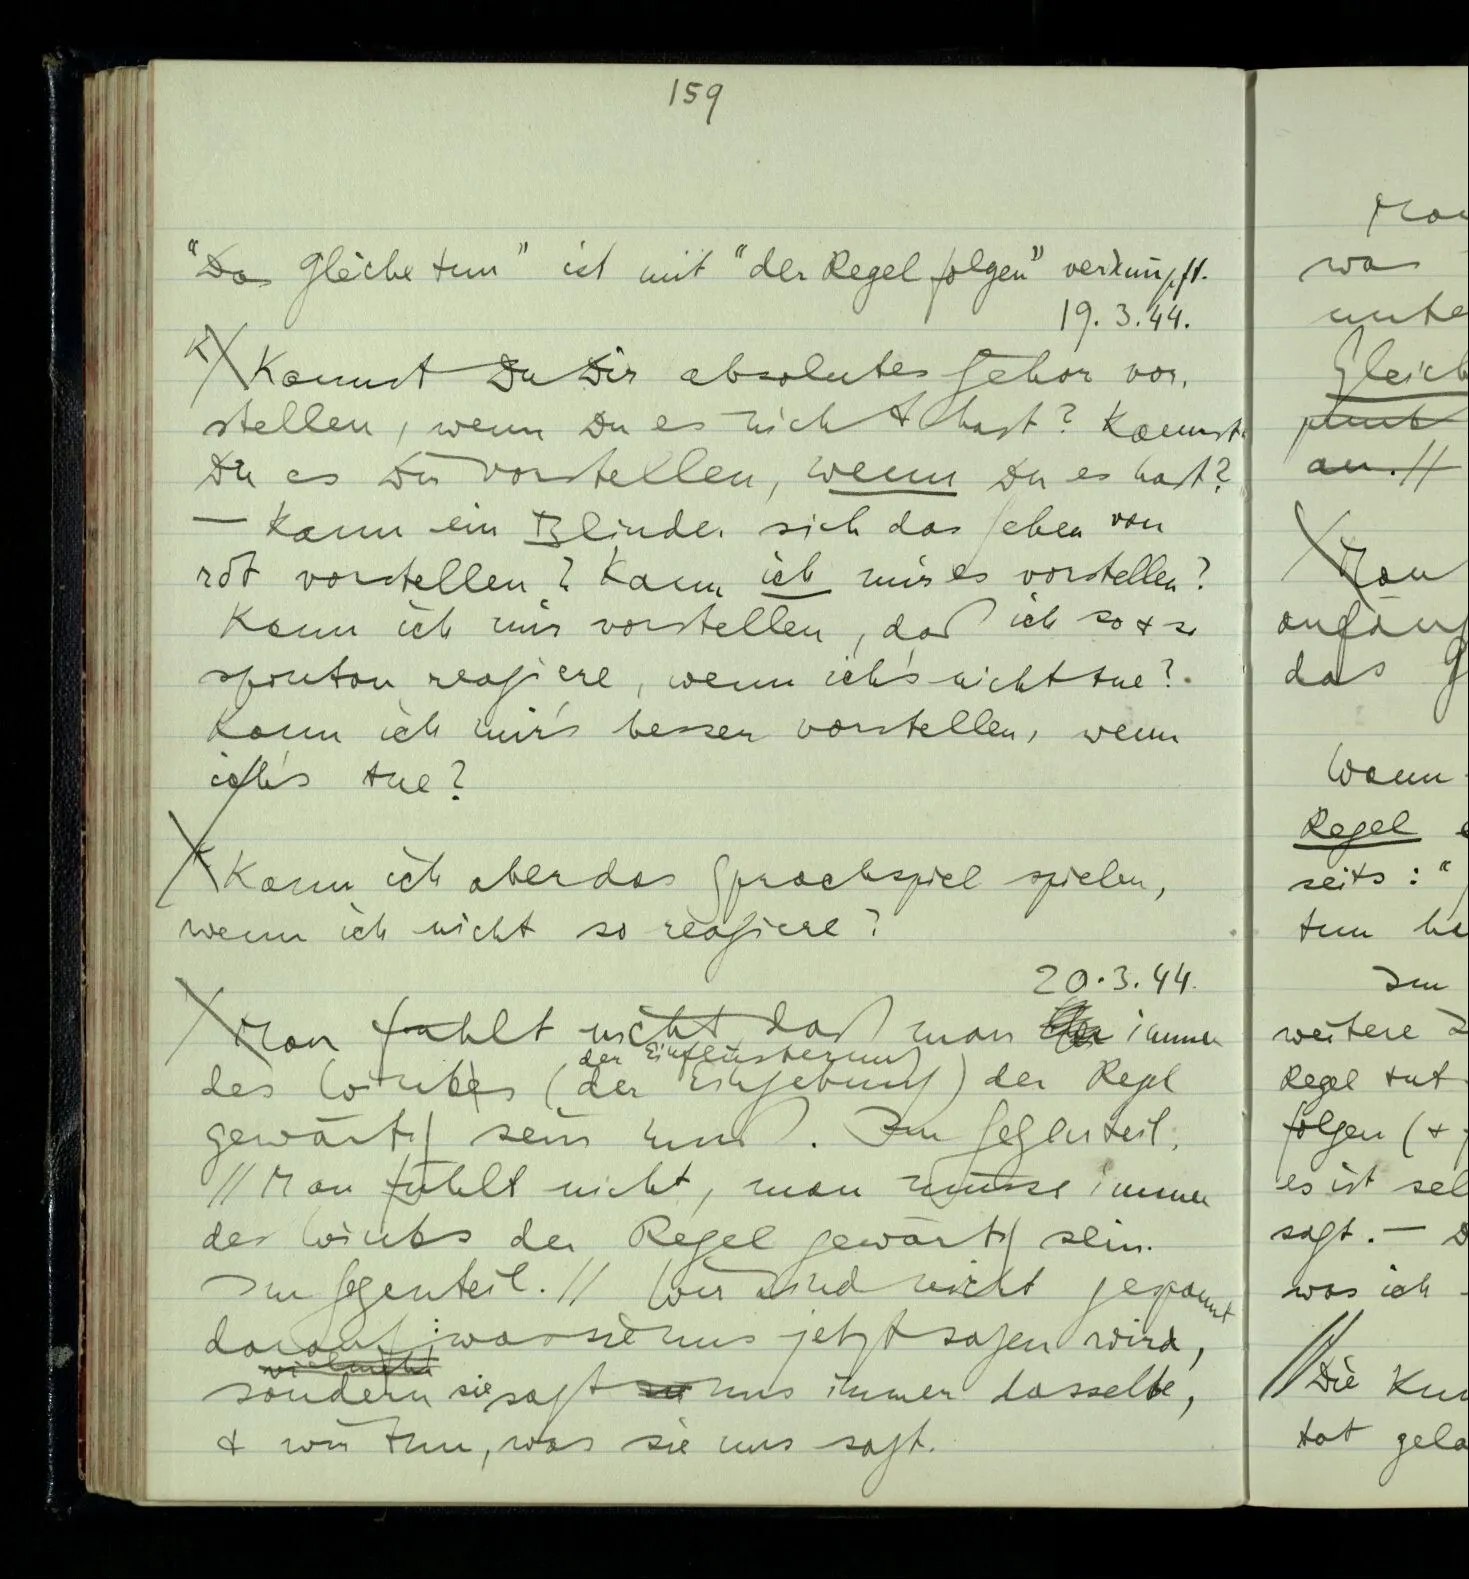 159
"Das Gleiche tun" ist mit "der Regel folgen" verknüpft.
19.3.44.
Kannst Du Dir absolutes Gehör vor-
stellen, wenn Du es nicht hast? Kannst
Du es Dir vorstellen, wenn Du es hast?
– Kann ein Blinder sich das Sehen von
rot vorstellen? Kann ich mir es vorstellen?
Kann ich mir vorstellen, daß ich so & so
spontan reagiere, wenn ich's nicht tue?
Kann ich mir's besser vorstellen, wenn
ich's tue?
Kann ich aber das Sprachspiel spielen,
wenn ich nicht so reagiere?
20.3.44.
Man fühlt nicht daß man immer
der Einflüsterung
des Winkes (der Eingebung) der Regel
gewärtig sein muß. Im Gegenteil.
// Man fühlt nicht, man müsse immer
des Winks der Regel gewärtig sein.
Im Gegenteil. // Wir sind nicht gespannt
darauf, was sie uns jetzt sagen wird,
vielmehr
sondern sie sagt uns immer dasselbe,
& wir tun, was sie uns sagt.
Man
was
unte
Gleich
an. //
Man
anfäng
das G
Wenn
Regel e
seits: "
tun
Im
weitere
Regel tut
folgen (&
es ist sel
sagt. – D
was ich
// Die
tat gela